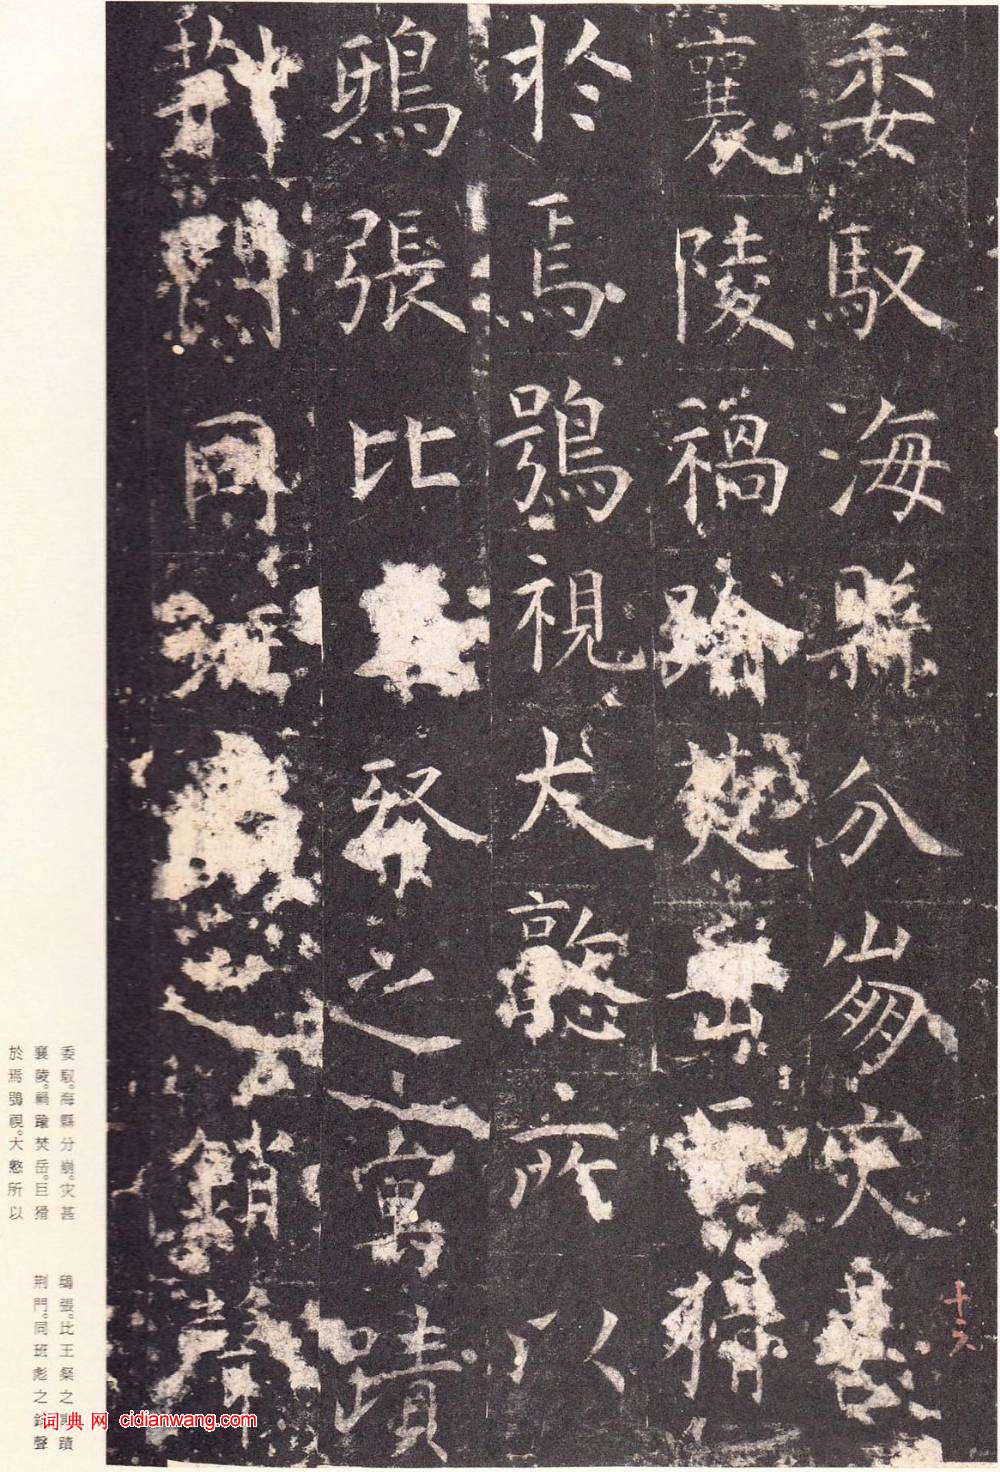 委馭海縣分崩灾甚
襄陵禍踰焚岳巨猾
於焉鶚視大憝所以
鴟張比王粲之寓蹟
荊門同班彪之銷聲
十六
委馭。海縣分崩。灾甚
襄陵。禍踰焚岳。巨猾
於焉鶚視。大憝所以
鴟張。比王粲之寓蹟
荊門。同班彪之銷聲
词典网 cidianwang.com